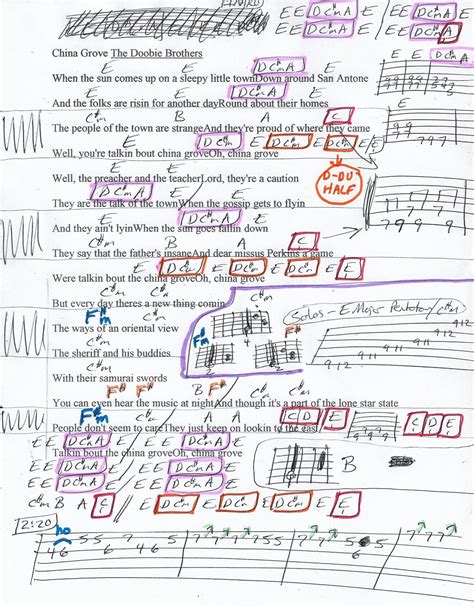 INTRO E E D C#m A E E D C#m A
E E D C#m A E E D C#m A
China Grove The Doobie Brothers
E E D C#m A
When the sun comes up on a sleepy little townDown around San Antone
E E D C#m A E
And the folks are risin for another dayRound about their homes
C#m B A C
The people of the town are strangeAnd they're proud of where they came
E D C#m E D C#m E D C#m E
Well, you're talkin bout china groveOh, china grove
D-DU
HALF
E
Well, the preacher and the teacherLord, they're a caution
E D C#m A E
They are the talk of the townWhen the gossip gets to flyin
E D C#m A E
And they ain't lyinWhen the sun goes fallin down
C#m B A C
They say that the father's insaneAnd dear missus Perkins a game
E D C#m E D C#m E D C#m E E
Were talkin bout the china groveOh, china grove
C#m
But every day theres a new thing comin
F#m
The ways of an oriental view
Solos - E Major Pentatonic/C#m
E
The sheriff and his buddies
C#m
With their samurai swords
F# B F# C#m
You can even hear the music at nightAnd though it's a part of the lone star state
F#m A A C D E
People don't seem to careThey just keep on lookin to the east
C D E
E E D C#m A E E D C#m A
Talkin bout the china groveOh, china grove
E E D C#m A E E D C#m A
E E D C#m A E E D C#m A
B
C#m B A C E D C#m E D C#m E D C#m E E
2:20
ho